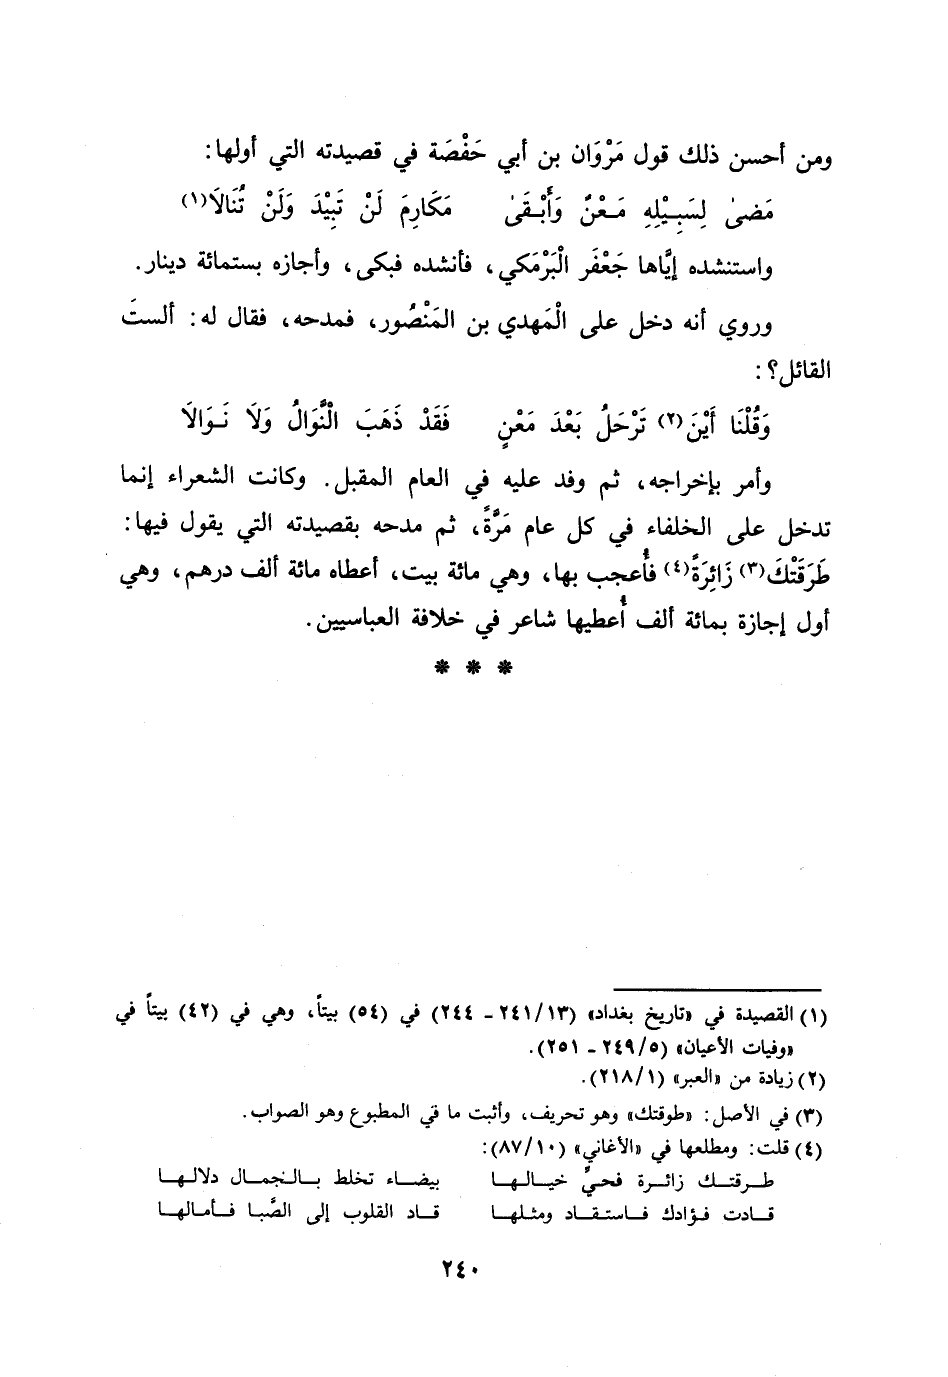 ومن أحسن ذلك قول مَرْوَان بن أبي حَفْصَة في قصيدته التي أولها:
مَضىٰ لِسَبِيْلِهِ مَـعْنٌ وَأَبْـقَىٰ مَكَارِمَ لَنْ تَبِيْدَ وَلَنْ تُنَالَا(١)
واستنشده إيَّاها جَعْفَر الْبَرْمَكي، فأنشده فبكى، وأجازه بستمائة دينار.
وروي أنه دخل على الْمَهدي بن المَنْصُور، فمدحه، فقال له: ألستَ
القائل؟:
وَقُلْنَا أَيْنَ(٢) تَرْحَلُ بَعْدَ مَعْنٍ فَقَدْ ذَهَبَ الْنَّوَالُ وَلَا نَـوَالَا
وأمر بإخراجه، ثم وفد عليه في العام المقبل. وكانت الشعراء إنما
تدخل على الخلفاء في كل عام مَرَّةً، ثم مدحه بقصيدته التي يقول فيها:
طَرَقَتْكَ(٣) زَائِرَةً(٤) فأُعجب بها، وهي مائة بيت، أعطاه مائة ألف درهم، وهي
أول إجازة بمائة ألف أُعطيها شاعر في خلافة العباسيين.
* * *
(١) القصيدة في «تاريخ بغداد» (٢٤١/١٣ ـ ٢٤٤) في (٥٤) بيتاً، وهي في (٤٢) بيتاً في
«وفيات الأعيان» (٢٤٩/٥ ـ ٢٥١).
(٢) زيادة من «العبر» (٢١٨/١).
(٣) في الأصل: «طوقتك» وهو تحريف، وأثبت ما في المطبوع وهو الصواب.
(٤) قلت: ومطلعها في «الأغاني» (٨٧/١٠):
طـرقتـك زائـرة فحيِّ خيـالـهـا بيضـاء تخلط بـالـنجمـال دلالـهـا
قـادت فـؤادك فـاستـقـاد ومثـلهـا قـاد القلوب إلى الصِّبا فـأمـالهـا
٢٤٠